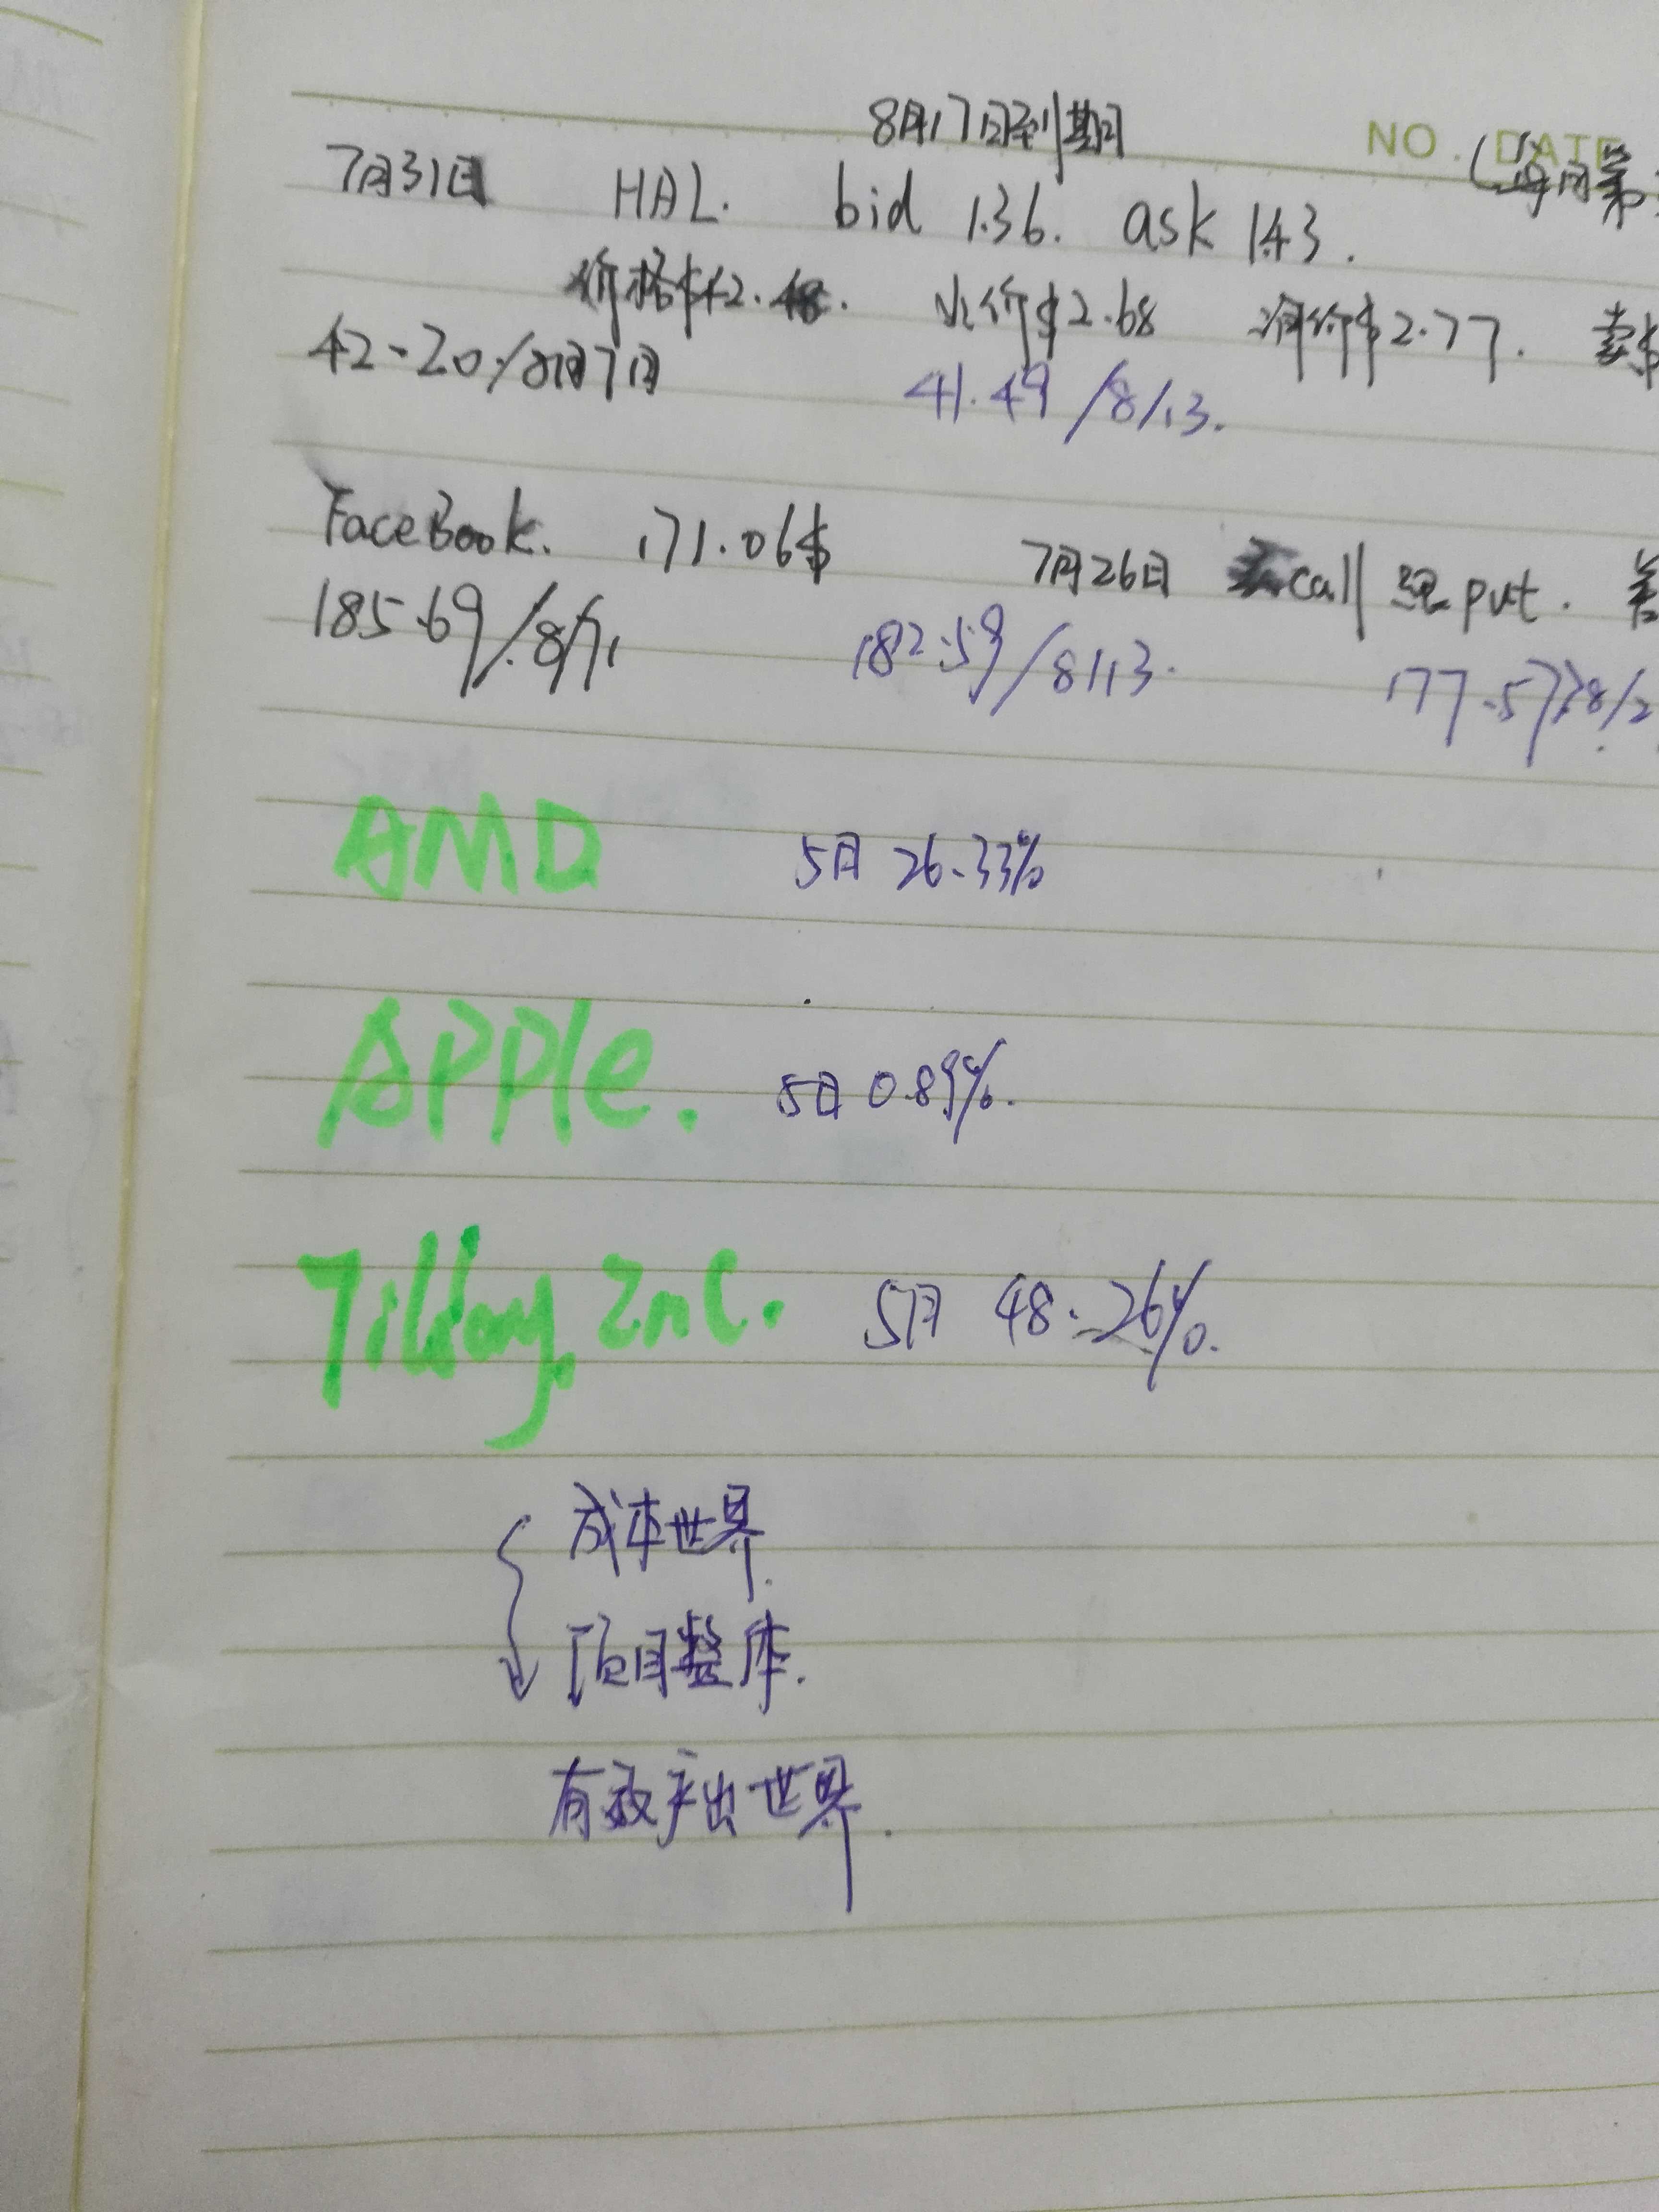 8月17日到期
NO. DATE
(每月第
7月31日 HAL. bid 1.36. ask 1.43.
价格$42.48. 价$2.68 价$2.77. 卖$
42.20/8月7日 41.49/8/13.
FaceBook. 171.06$ 7月26日 call put.
185.69/8/7 182.59/8/13. 177.57 8/2
AMD 5月 26.33%
APPle. 5日 0.89%.
Inc. 5月 48.26%.
成本世界.
项目整体.
有效产出世界.